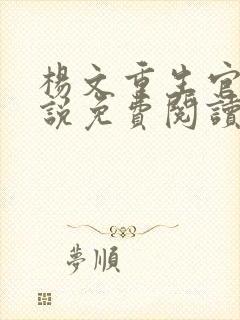 楊文重生官
說免費閱讀
夢順